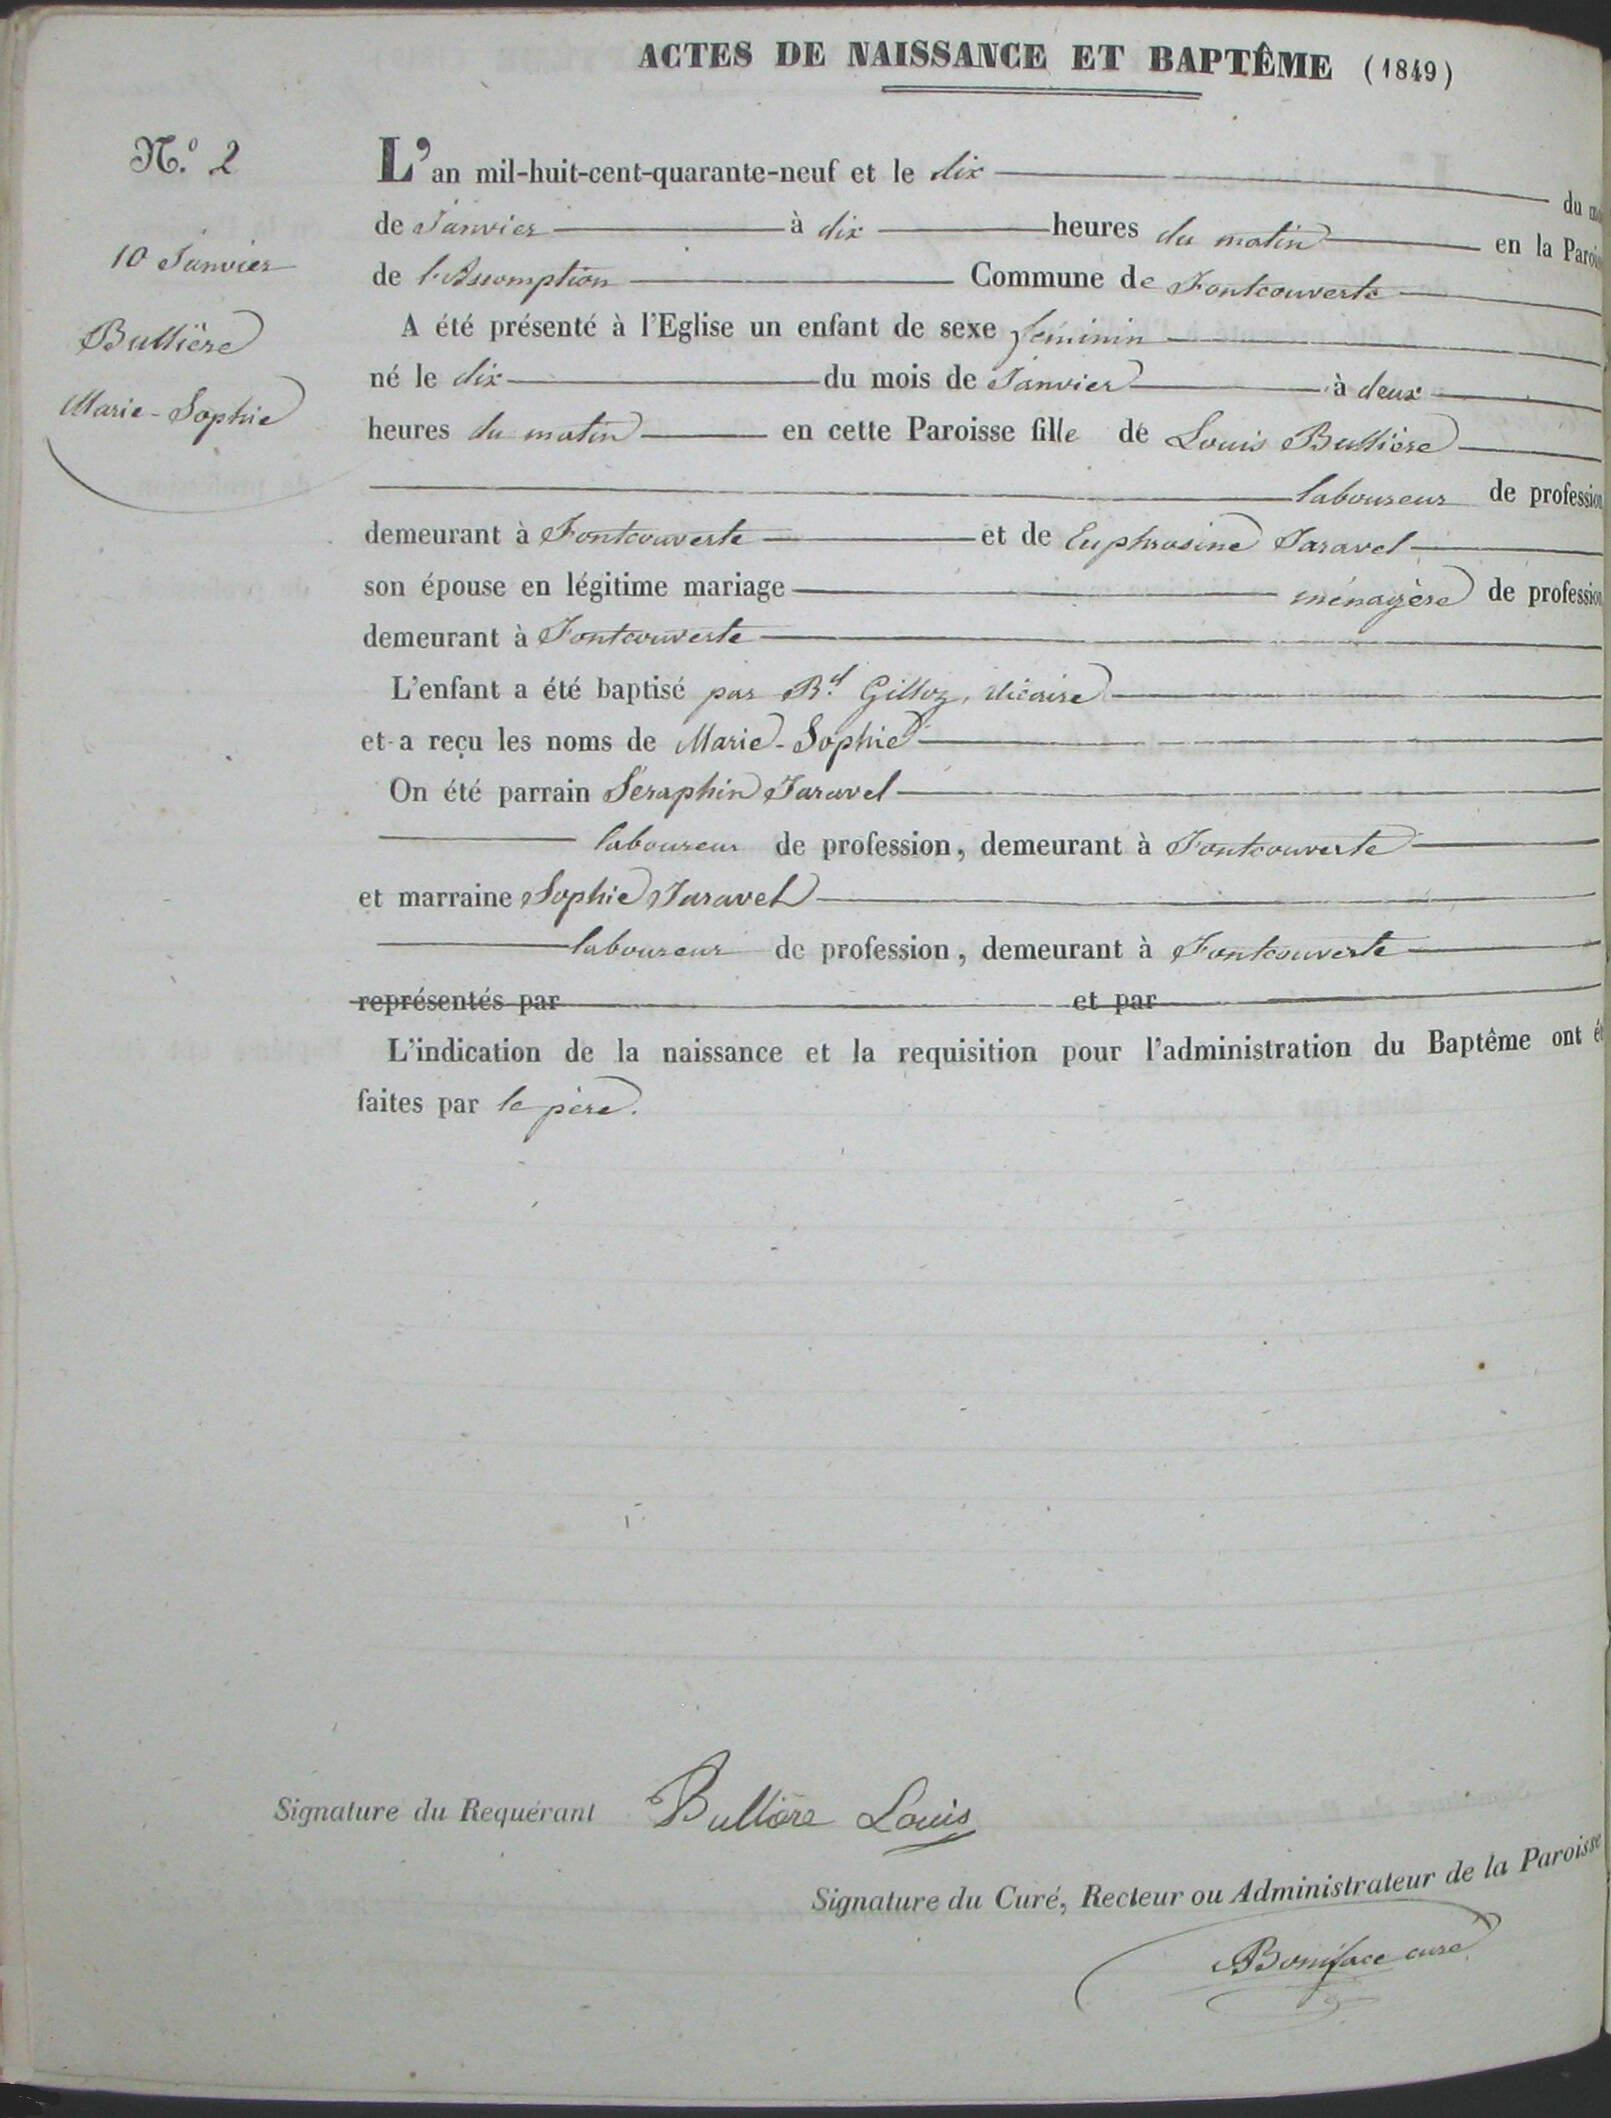 ACTES DE NAISSANCE ET BAPTÊME (1849)
N.º 2
10 Janvier
Bullière
Marie-Sophie
L'an mil-huit-cent-quarante-neuf et le dix du
de Janvier à dix heures du matin en la
de l'Assomption Commune de Fontcouverte
A été présenté à l'Eglise un enfant de sexe féminin
né le dix du mois de Janvier à deux
heures du matin en cette Paroisse fille de Louis Bullière
laboureur de profession
demeurant à Fontcouverte et de Euphrosine Jaravel
son épouse en légitime mariage ménagère de profession
demeurant à Fontcouverte
L'enfant a été baptisé par Rd Gilloz, vicaire
et a reçu les noms de Marie-Sophie
On été parrain Séraphin Jaravel
laboureur de profession, demeurant à Fontcouverte
et marraine Sophie Jaravel
laboureur de profession, demeurant à Fontcouverte
représentés par et par
L'indication de la naissance et la requisition pour l'administration du Baptême ont
faites par le père.
Signature du Requérant Bullière Louis
Signature du Curé, Recteur ou Administrateur de la Paroisse
Boniface curé